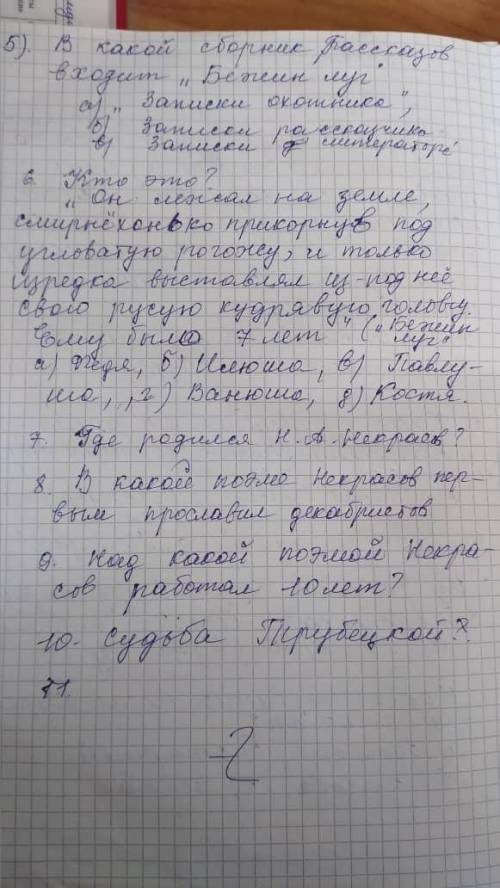 5). В какой сборник Рассказов
входит „Бежин луг"
а) „Записки охотника",
б) Записки рассказчика
в) Записки литератора
6. Кто это?
„Он лежал на земле,
смирнёхонько прикорнув под
угловатую рогожу, и только
изредка выставлял из-под неё
свою русую кудрявую голову.
Ему было 7 лет" („Бежин
луг"
а) Федя, б) Илюша, в) Павлу-
ша, г) Ванюша, д) Костя.
7. Где родился Н.А. Некрасов?
8. В какой поэме Некрасов пер-
вым прославил декабристов
9. Над какой поэмой Некра-
сов работал 10 лет?
10. Судьба Трубецкой?
11.